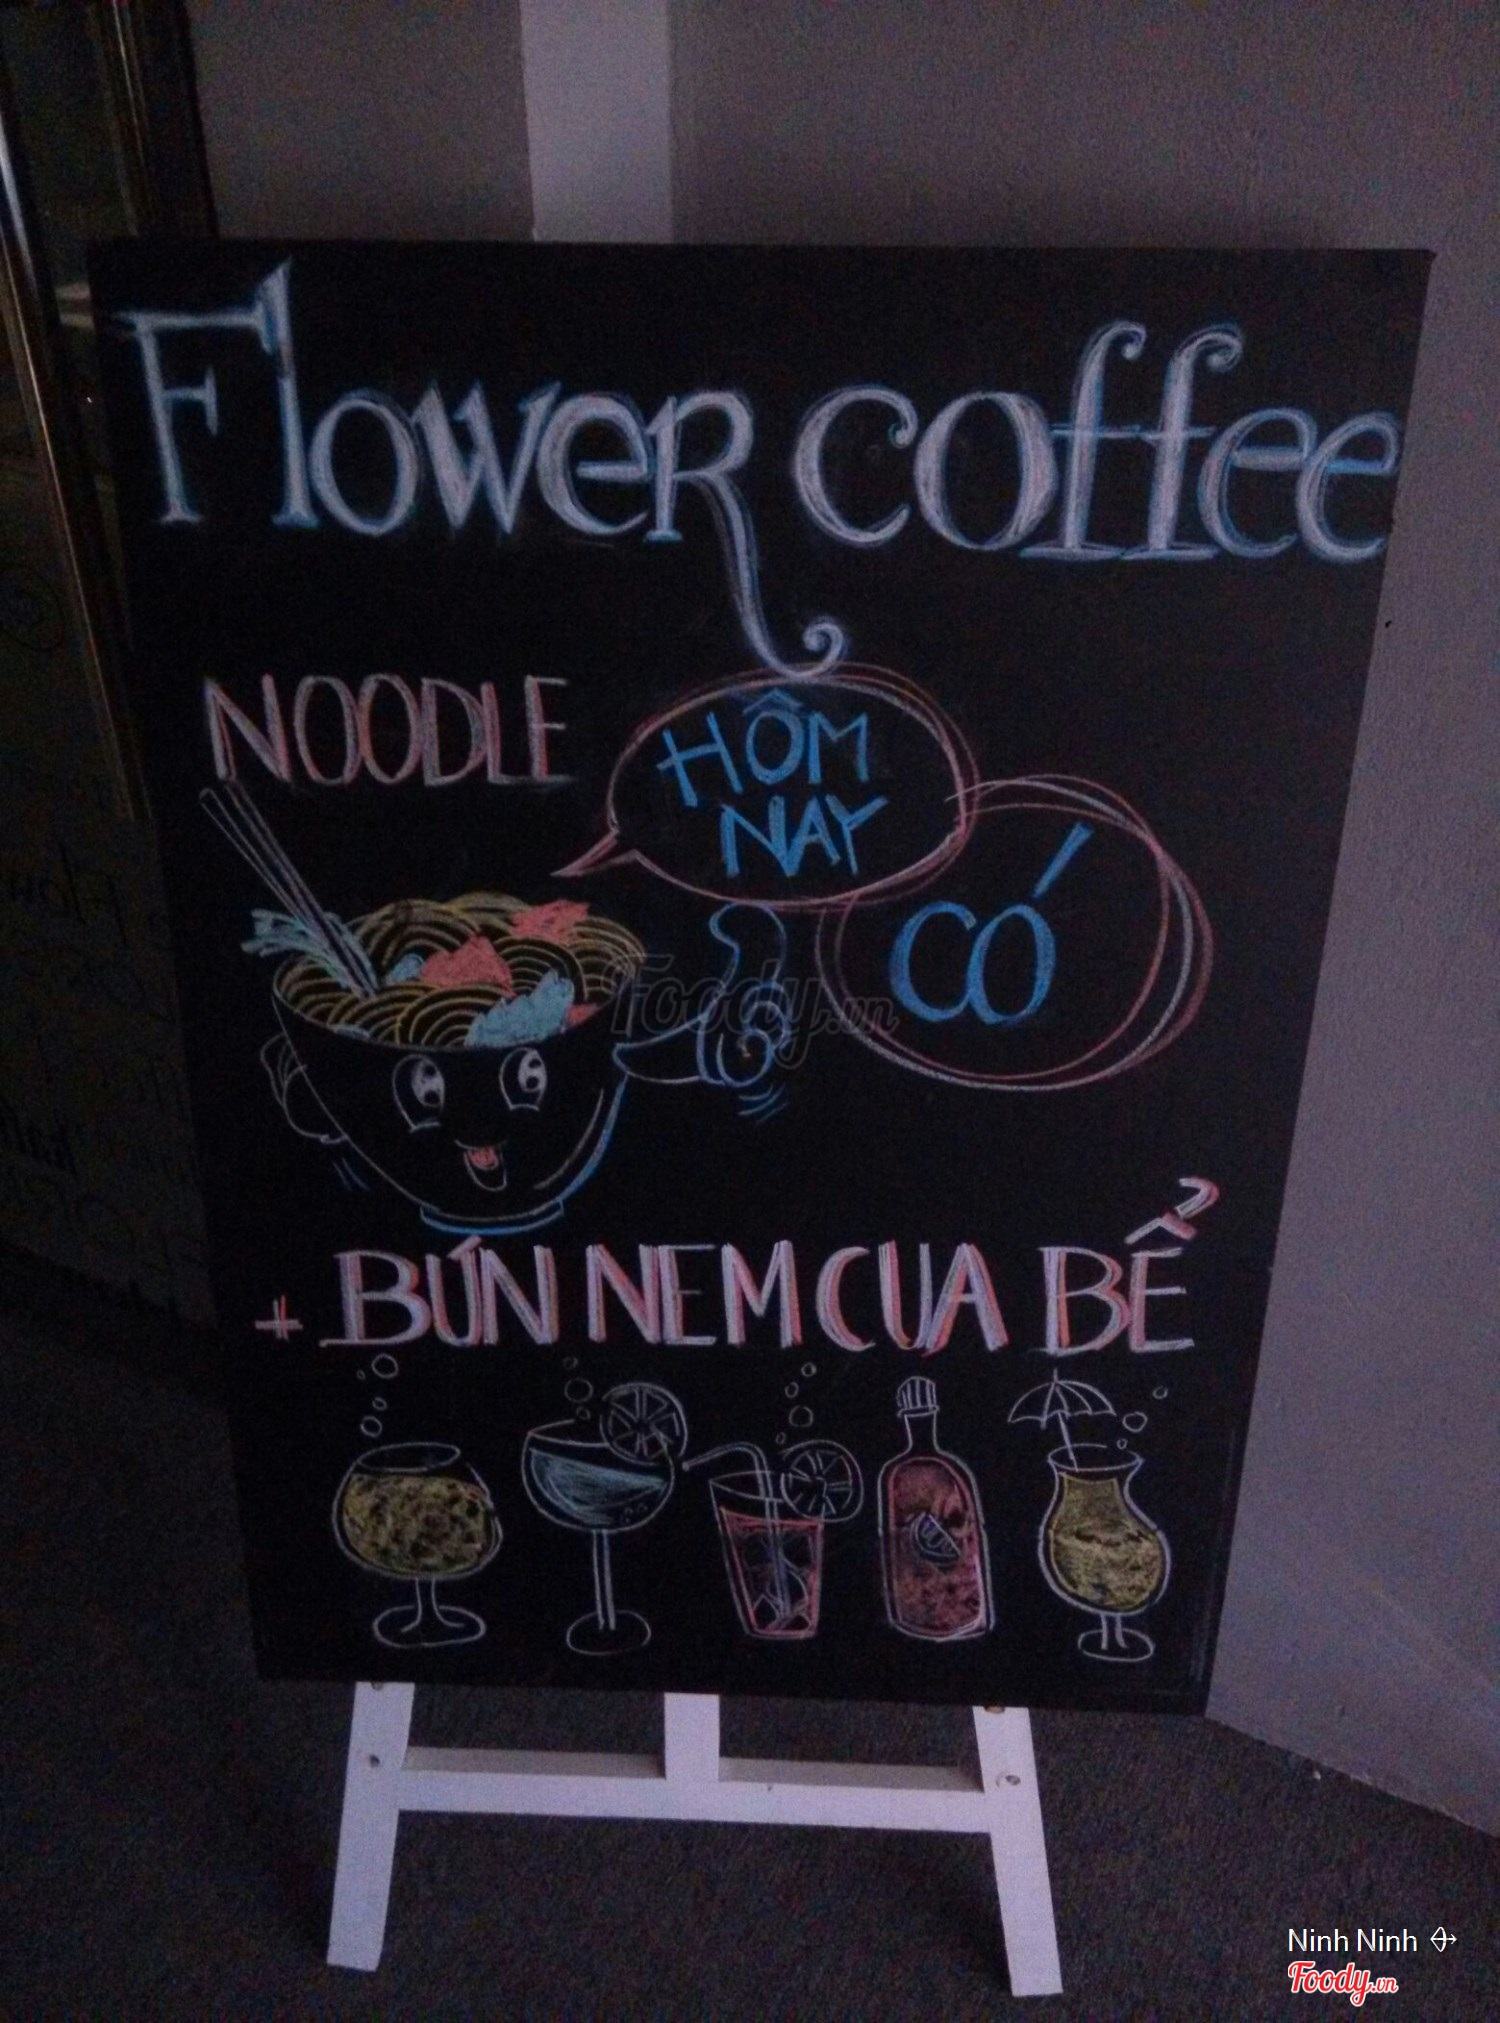 Flower coffee
NOODLE
HÔM
NAY
CÓ
Foody.vn
+ BÚN NEM CUA BỂ
Ninh Ninh
Foody.vn